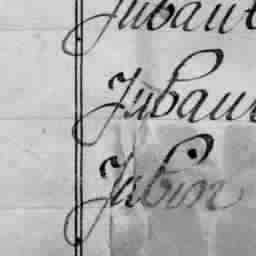 Jubaut
Jubau
Jubin